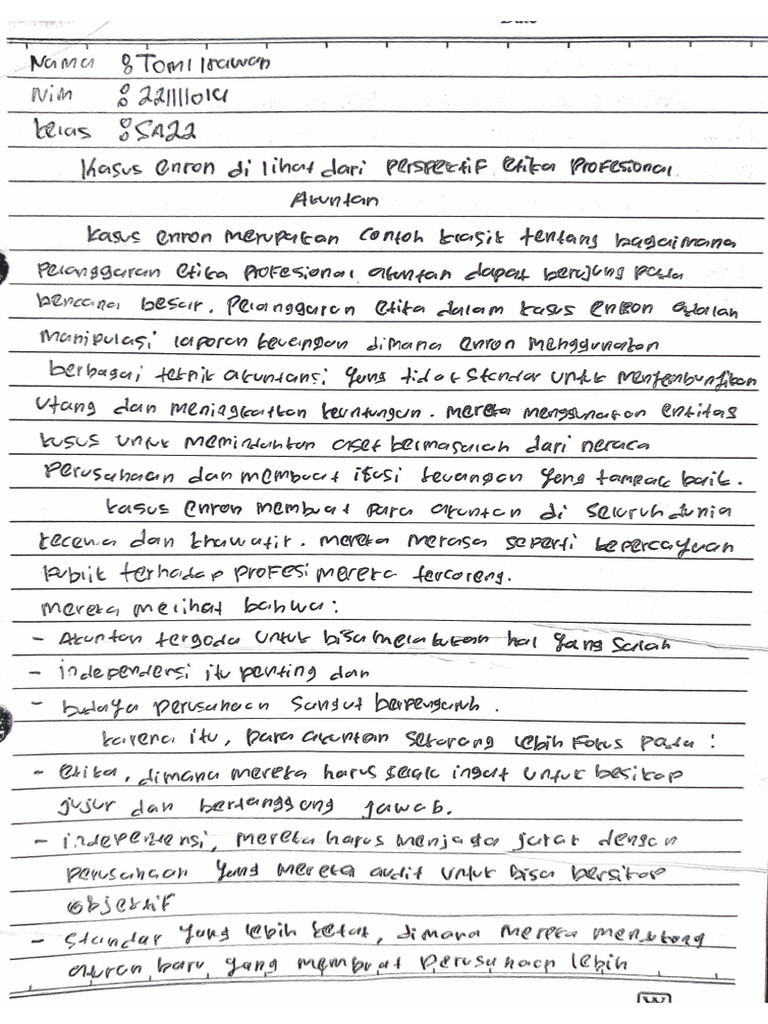 Date
Nama : Tomi Irawan
Nim : 221111014
Kelas : SA22
Kasus enron di lihat dari Perspektif etika Profesional
Akuntan
Kasus enron merupakan contoh klasik tentang bagaimana
Pelanggaran etika profesional akuntan dapat berujung pada
bencana besar. Pelanggaran etika dalam kasus enron adalah
Manipulasi laporan keuangan dimana enron menggunakan
berbagai teknik akuntansi yang tidak standar untuk menyembunyikan
utang dan meningkatkan keuntungan. mereka menggunakan entitas
kusus untuk memindahkan aset bermasalah dari neraca
Perusahaan dan membuat ilusi keuangan yang tampak baik.
kasus enron membuat para akuntan di seluruh dunia
kecewa dan khawatir. mereka merasa seperti kepercayaan
Publik terhadap profesi mereka tercoreng.
mereka melihat bahwa :
- Akuntan tergoda untuk bisa melakukan hal yang salah
- independensi itu penting dan
- budaya perusahaan sangat berpengaruh .
karena itu, para akuntan sekarang lebih fokus pada :
- etika, dimana mereka harus selalu ingat untuk besikap
jujur dan bertanggung jawab.
- independensi, mereka harus menjaga jarak dengan
perusahaan yang mereka audit untuk bisa bersikap
objektif
- Standar yang lebih ketat, dimana mereka mendukung
aturan baru yang membuat perusahaan lebih